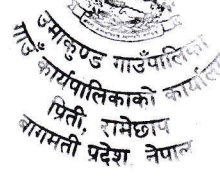 उमाकुण्ड गाउँपालिका
गाउँ कार्यपालिकाको कार्यालय
प्रिती, रामेछाप
बागमती प्रदेश नेपाल